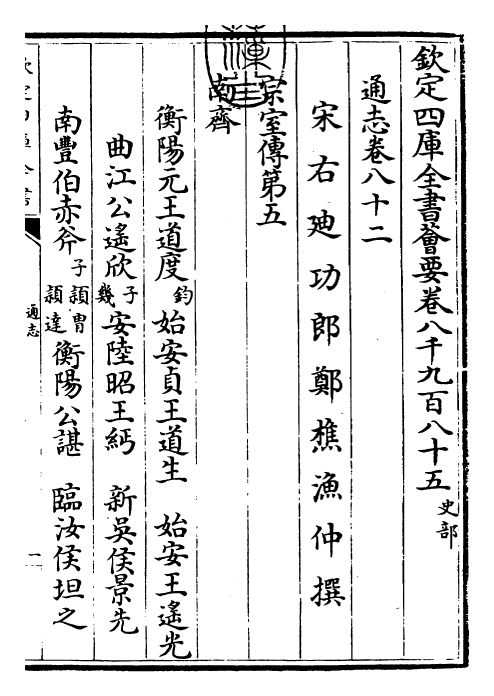 欽定四庫全書薈要卷八千九百八十五 史部
通志卷八十二
宋右廸功郎鄭樵漁仲撰
宗室傳第五
南齊
衡陽元王道度 鈞 始安貞王道生 始安王遙光
曲江公遙欣 子幾 安陸昭王緬 新吳侯景先
南豐伯赤斧 子頴胄 頴達 衡陽公諶 臨汝侯坦之
通志
一